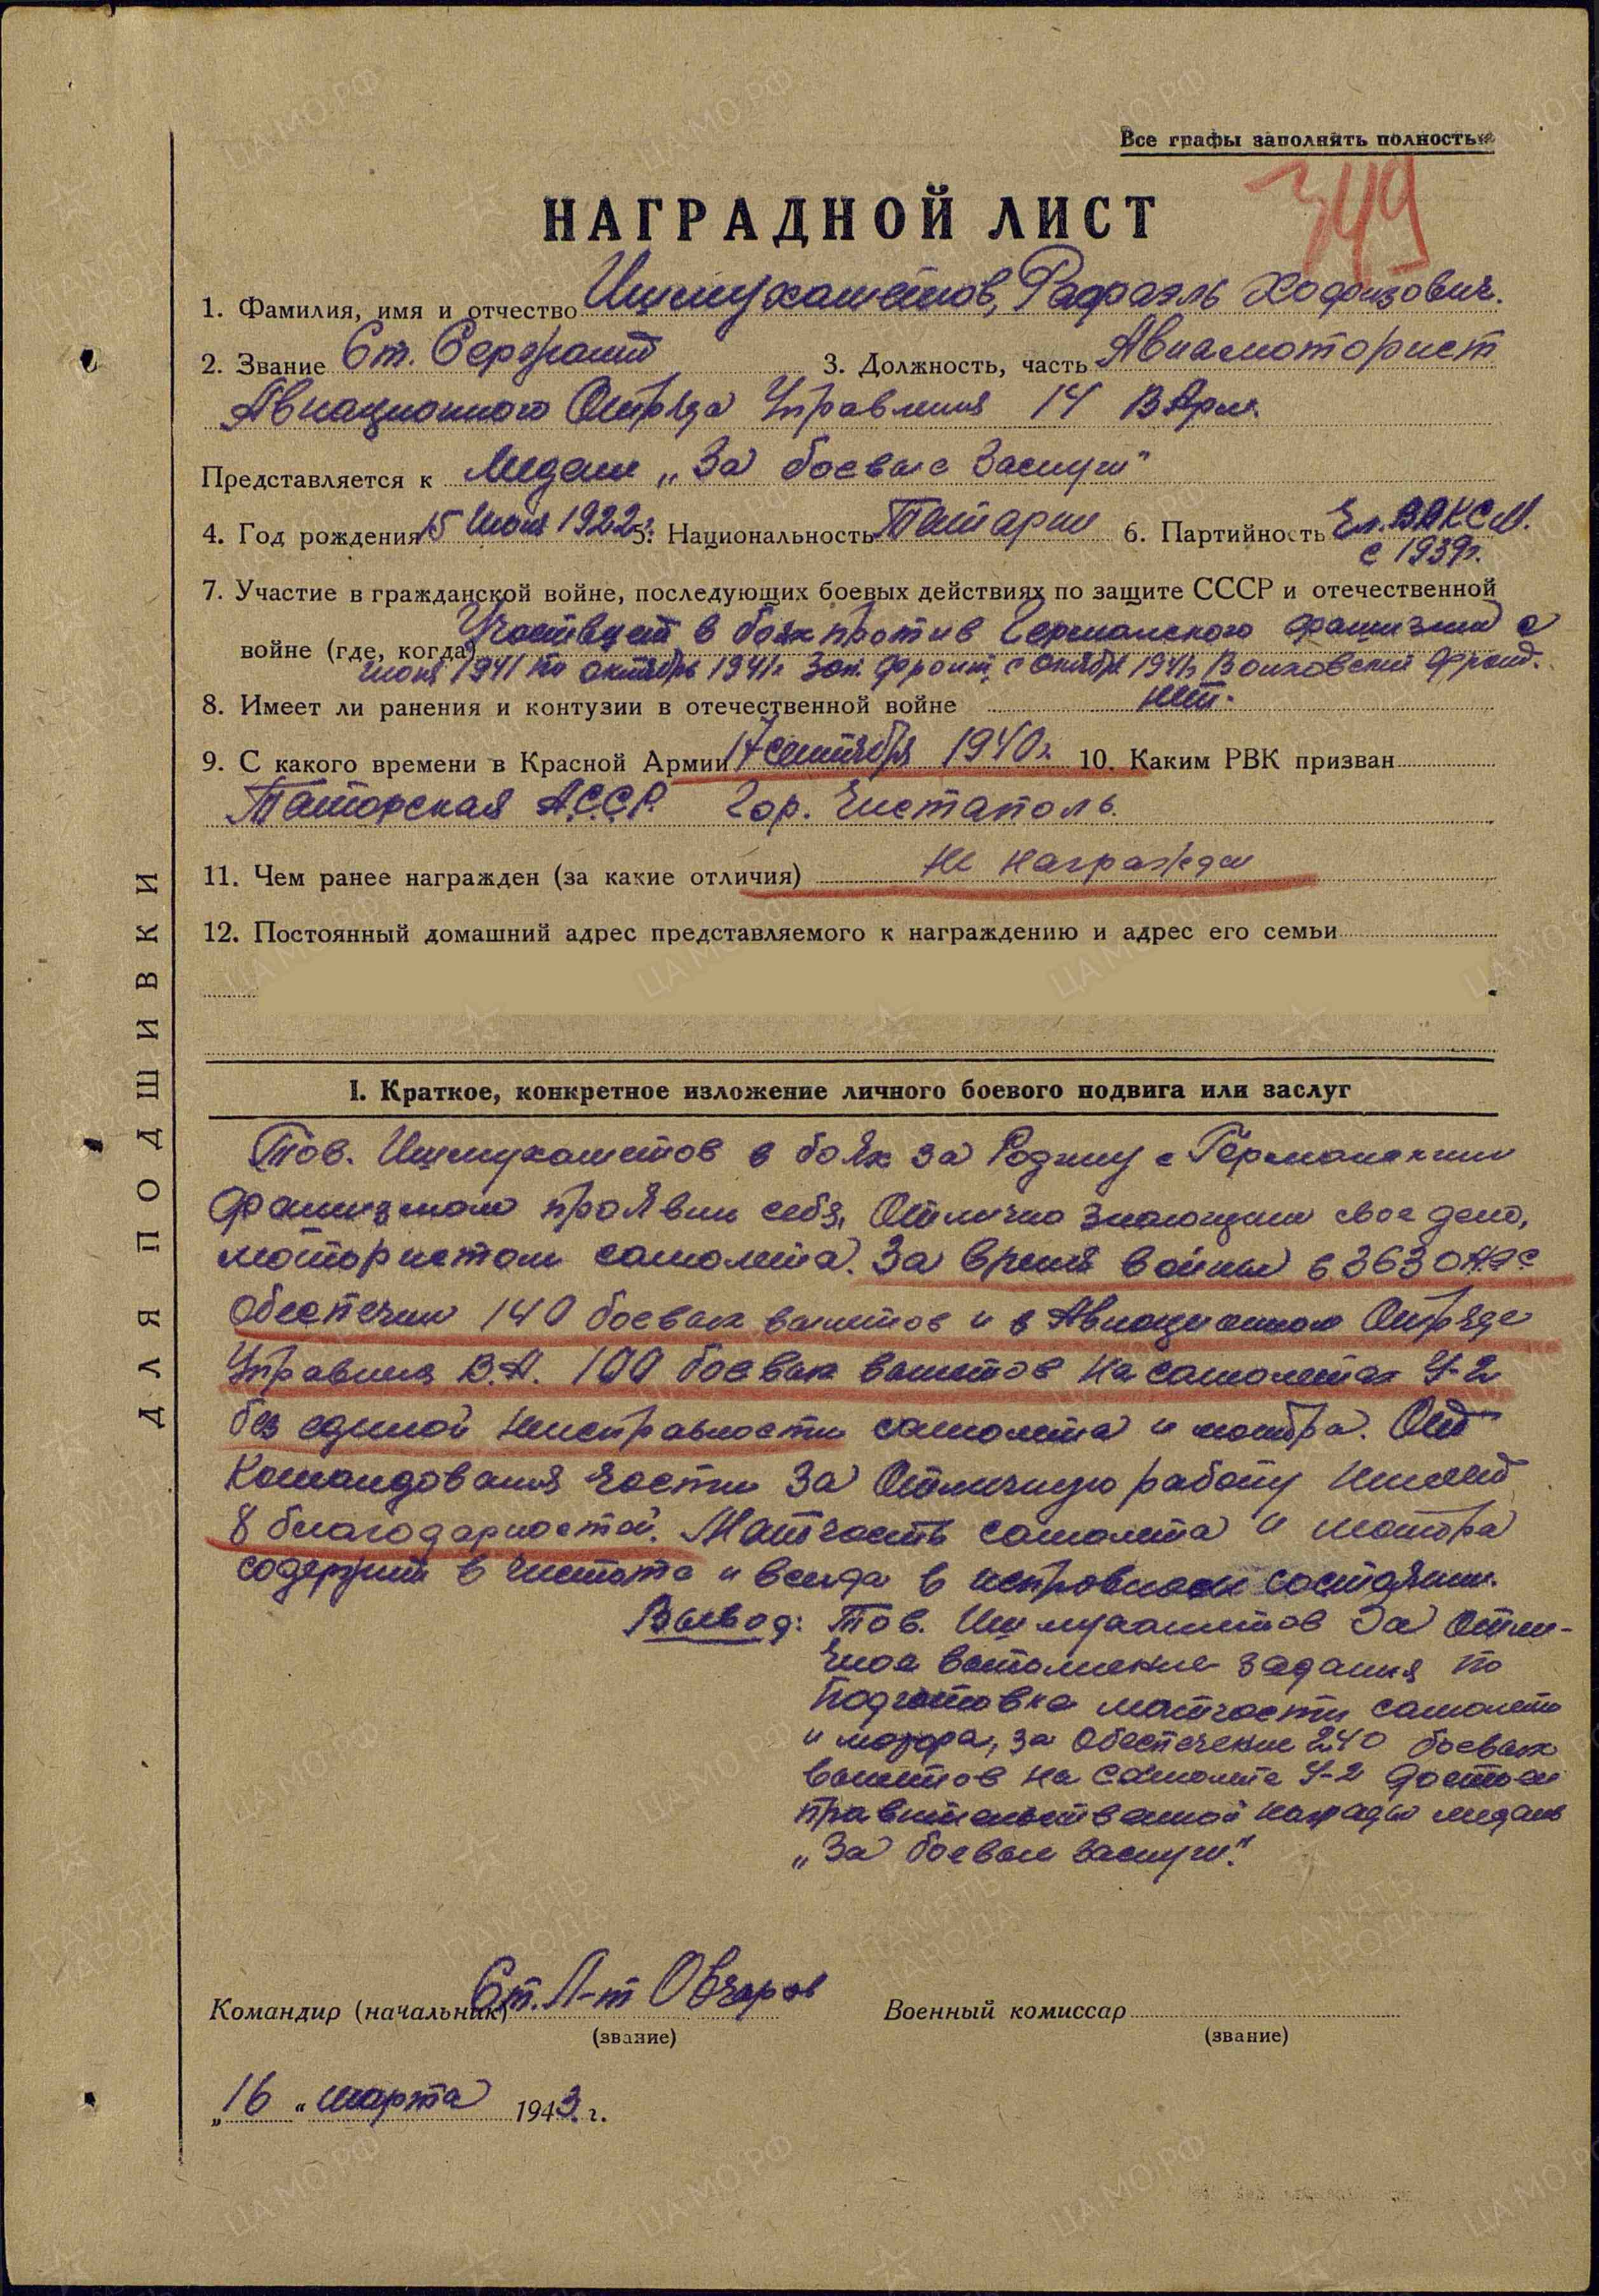 Все графы заполнять полностью
349
НАГРАДНОЙ ЛИСТ
1. Фамилия, имя и отчество Ишмухаметов, Рафаэль Хафизович.
2. Звание Ст. Сержант 3. Должность, часть Авиамоторист
Авиационного Отряда Управления 14 ВАрм.
Представляется к Медали „За боевые заслуги"
4. Год рождения 15 Июня 1922г. 5. Национальность Татарин 6. Партийность Чл. ВЛКСМ.
с 1939г.
7. Участие в гражданской войне, последующих боевых действиях по защите СССР и отечественной
войне (где, когда) Участвует в боях против Германского фашизма с
июня 1941 по октябрь 1941г. Зап. фронт, с октября 1941г. Волховский фронт.
8. Имеет ли ранения и контузии в отечественной войне нет.
9. С какого времени в Красной Армии 17 сентября 1940г. 10. Каким РВК призван
Татарская А.С.С.Р. Гор. Чистаполь.
11. Чем ранее награжден (за какие отличия) не награжден
12. Постоянный домашний адрес представляемого к награждению и адрес его семьи
I. Краткое, конкретное изложение личного боевого подвига или заслуг
Тов. Ишмухаметов в боях за Родину с Германским
фашизмом проявил себя, Отлично знающим свое дело,
мотористом самолета. За время войны в 363 ОАЭС
обеспечил 140 боевых вылетов и в Авиационном Отряде
Управления В.А. 100 боевых вылетов на самолетах У-2
без единой неисправности самолета и мотора. От
Командования части За Отличную работу имеет
8 благодарностей. Матчасть самолета и мотора
содержит в чистоте и всегда в исправном состоянии.
Вывод: Тов. Ишмухаметов За Отли-
чное выполнение задания по
подготовке матчасти самолета
и мотора, за обеспечение 240 боевых
вылетов на самолете У-2 достоин
правительственной награды медаль
„За боевые заслуги".
Командир (начальник) Ст. Л-т Овчаров
(звание)
Военный комиссар
(звание)
„16" марта 1943 г.
ДЛЯ ПОДШИВКИ
ЦАМО РФ
ПАМЯТЬ НАРОДА